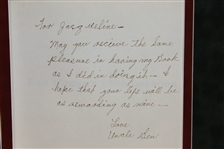 For Jacqueline —
May you receive the same
pleasure in having my Book
as I did in doing it — I
hope that your life will be
as rewarding as mine —
Love
Uncle Ben